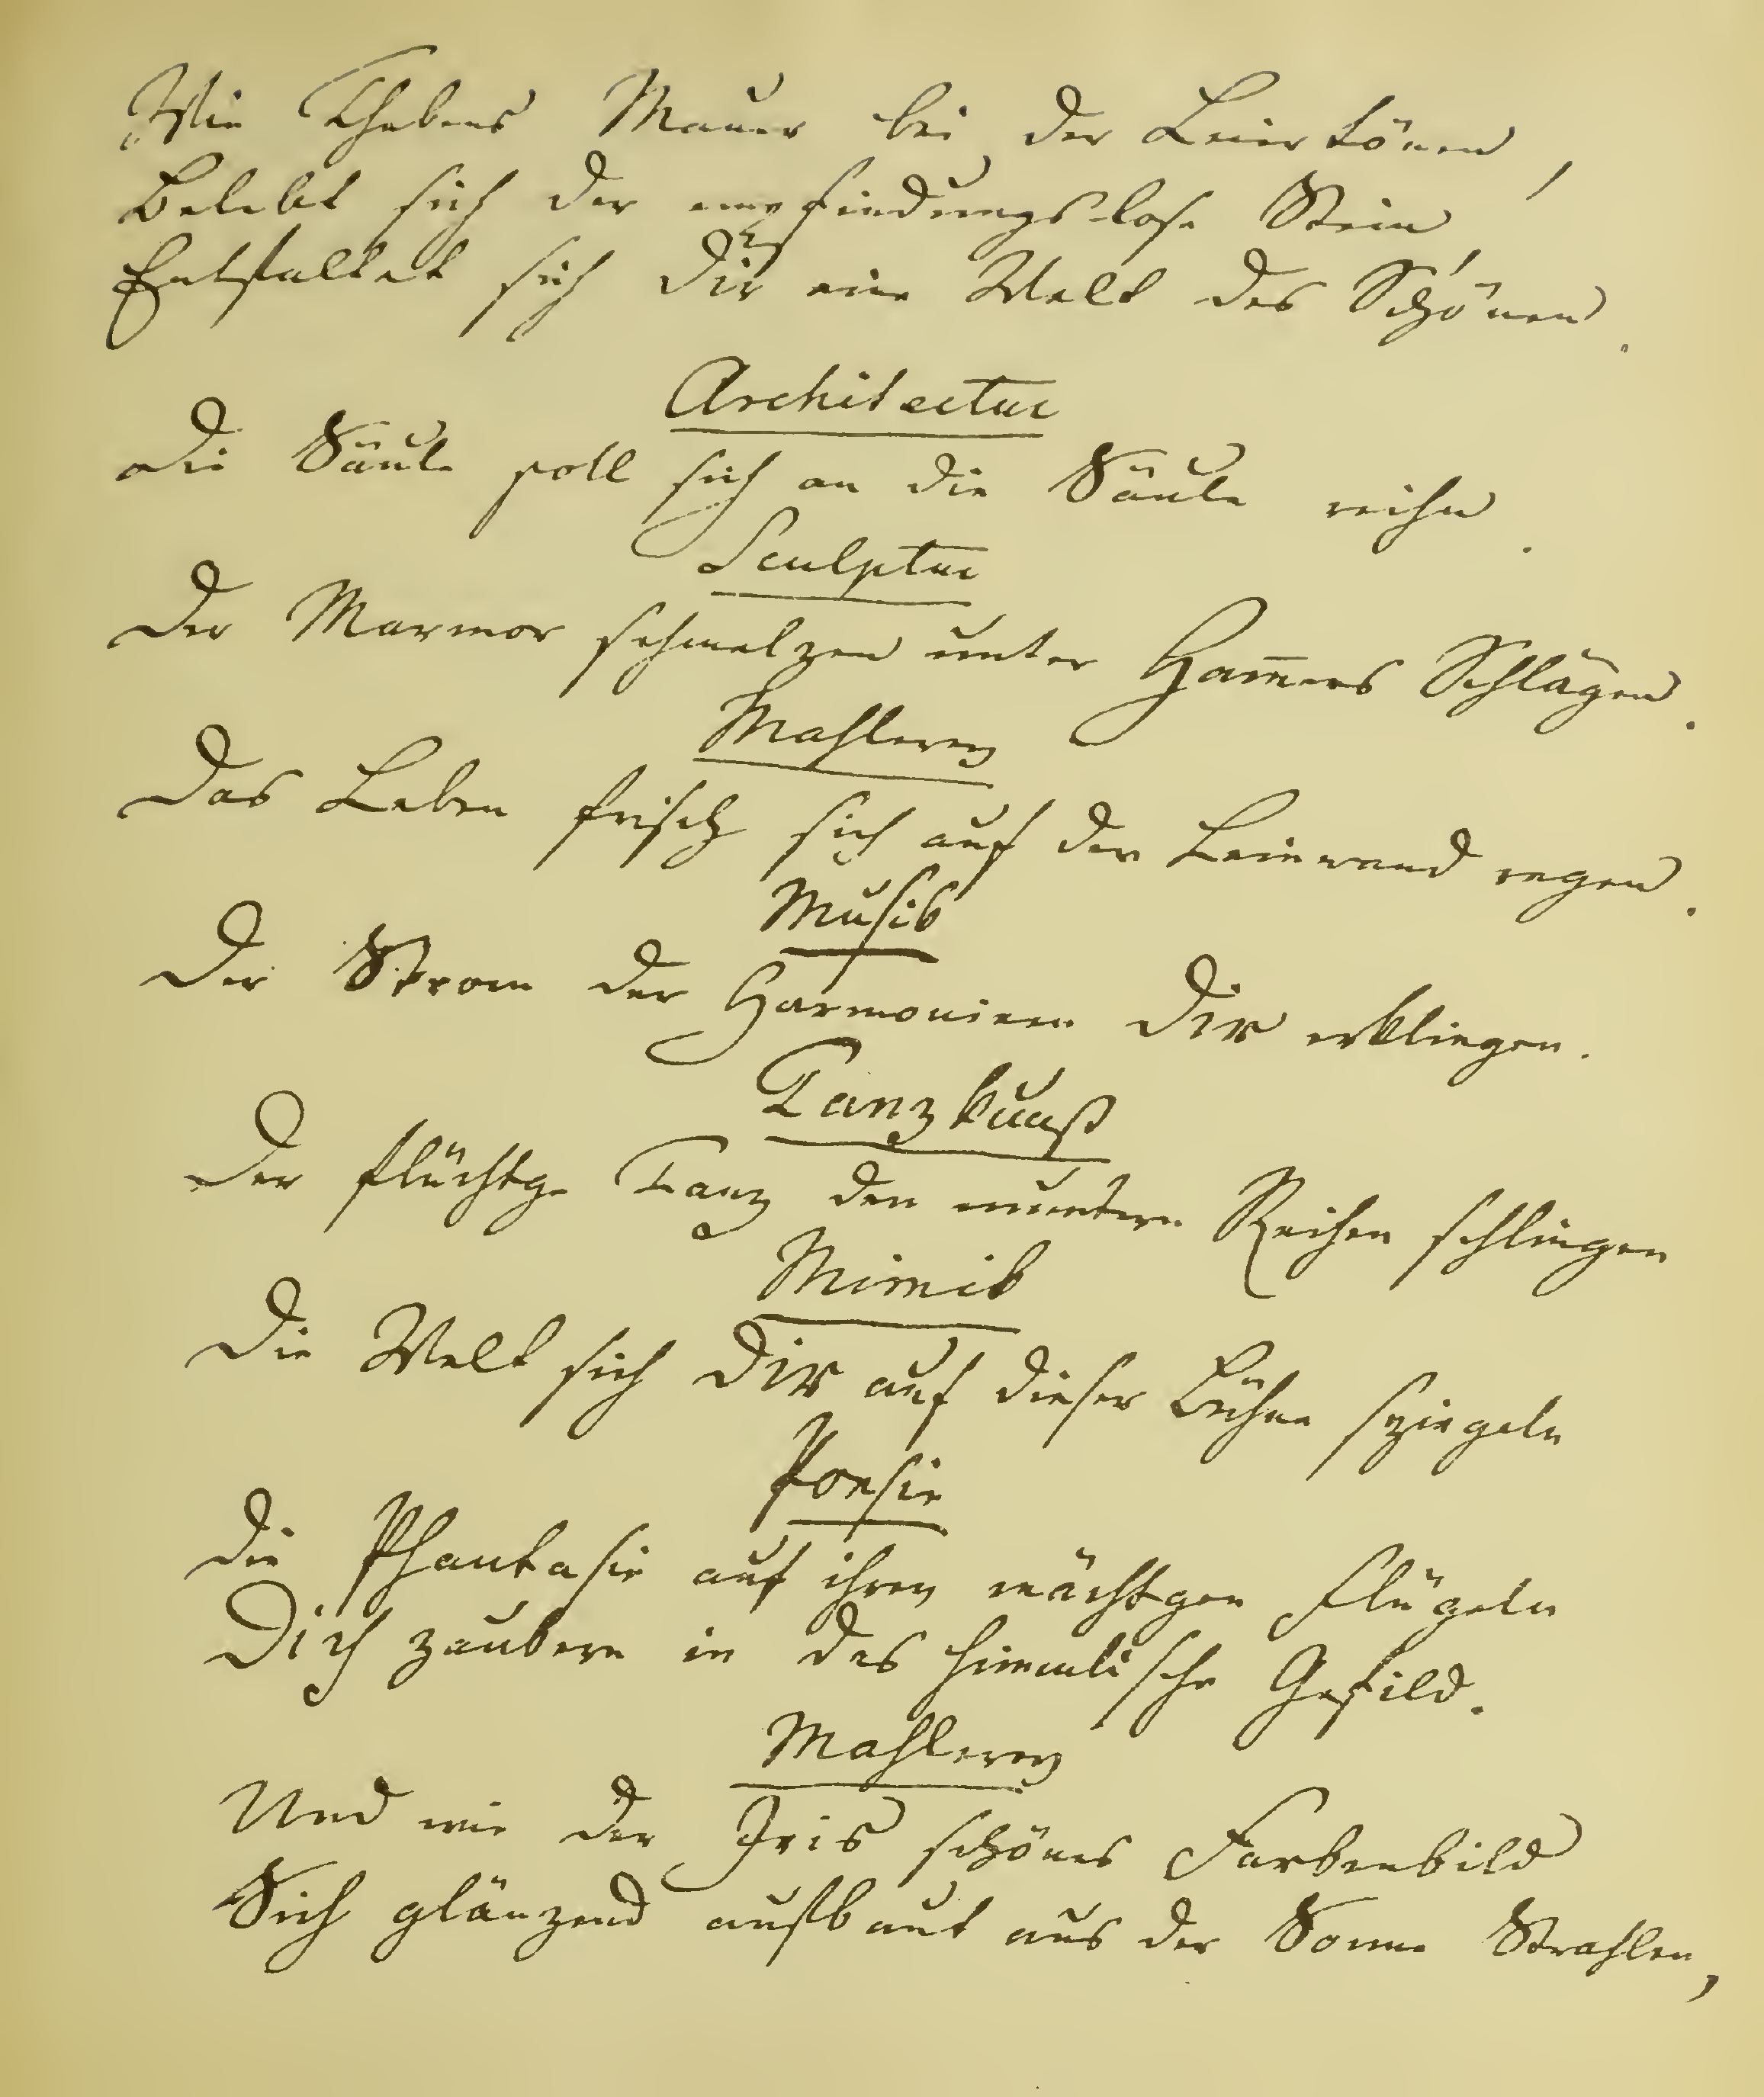 „Wie Thebens Mauer bei der Leier tönen,
Belebt sich der empfindungslose Stein,
Entfaltet sich Dir eine Welt des Schönen.
Architectur
Die Säule soll sich an die Säule reihn.
Sculptur
Der Marmor schmelzen unter Ham̄ers Schlägen.
Mahlerey
Das Leben frisch sich auf der Leinwand regen.
Musik
Der Strom der Harmonieen Dir erklingen.
Tanzkunst
Der flüchtge Tanz den muntern Reihen schlingen
Mimik
Die Welt sich Dir auf dieser Bühne spiegeln
Poesie
Die Phantasie auf ihren mächtgen Flügeln
Dich zaubern in das himmlische Gefild.
Mahlerey
Und wie der Iris schönes Farbenbild
Sich glänzend aufbaut aus der Sonne Strahlen,